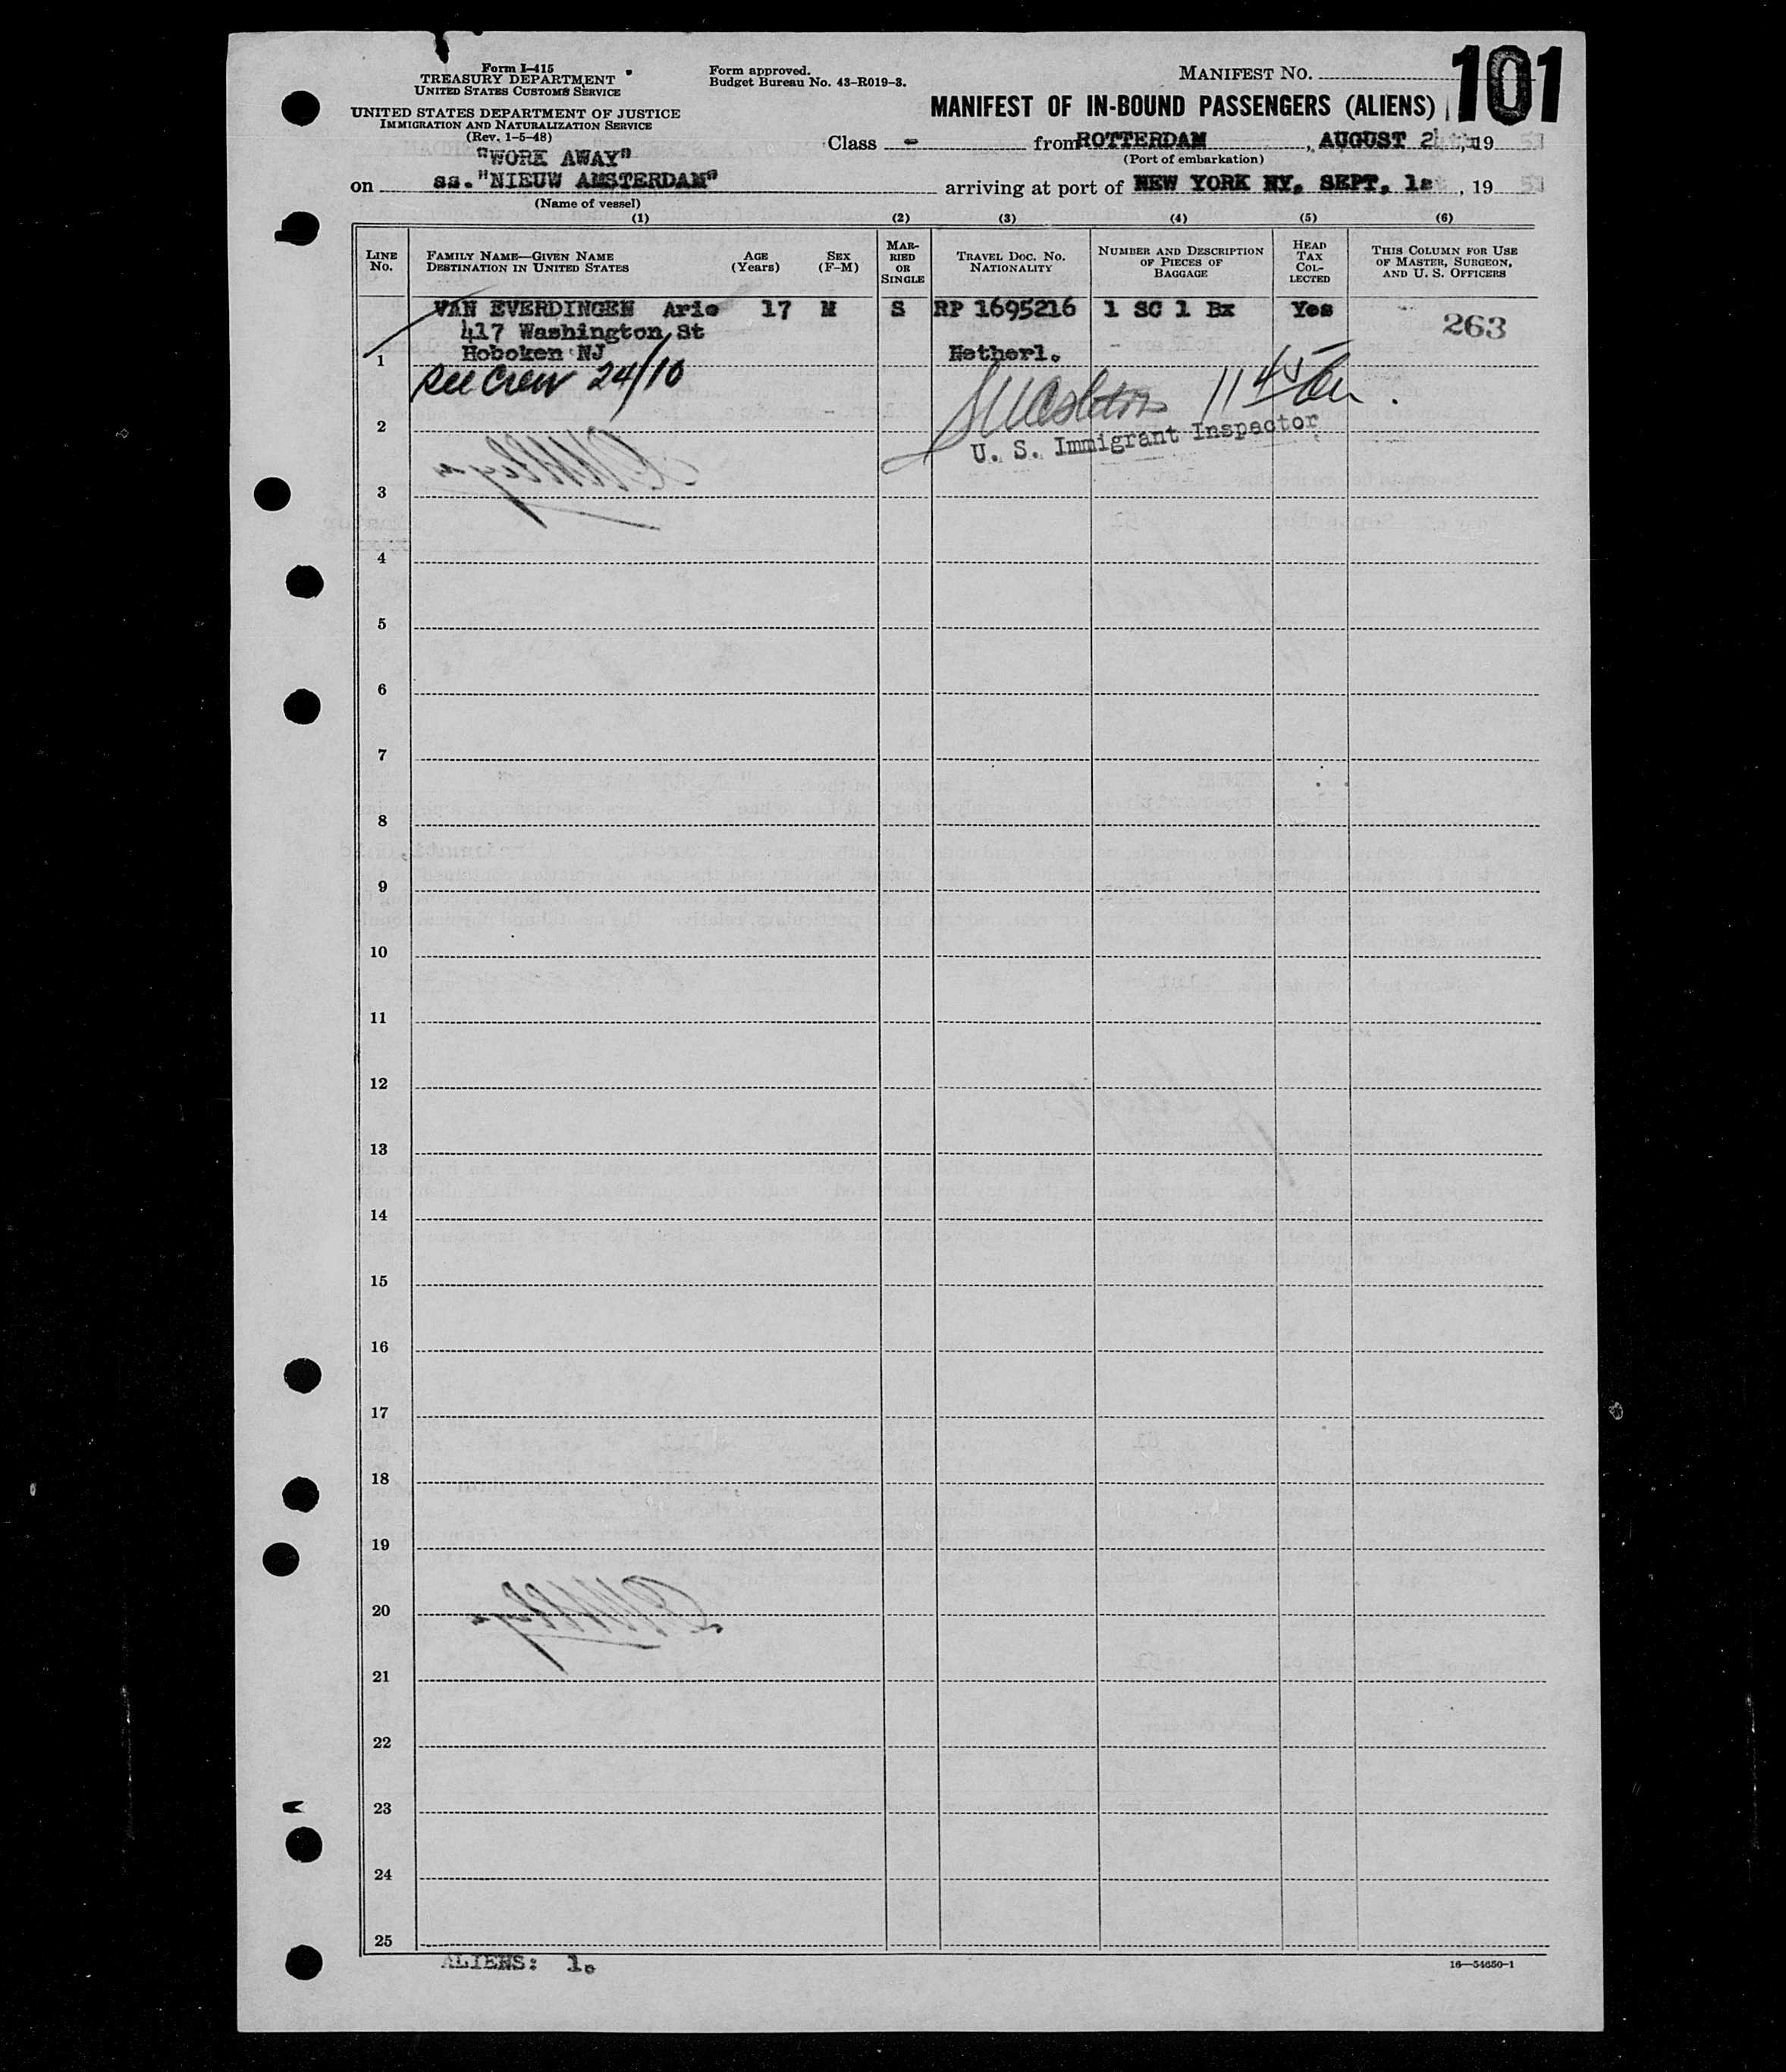 Form I-415
TREASURY DEPARTMENT
UNITED STATES CUSTOMS SERVICE
UNITED STATES DEPARTMENT OF JUSTICE
IMMIGRATION AND NATURALIZATION SERVICE
(Rev. 1-5-48)
Form approved.
Budget Bureau No. 43-R019-3.
MANIFEST NO.
101
MANIFEST OF IN-BOUND PASSENGERS (ALIENS)
"WORK AWAY"
Class - from ROTTERDAM, AUGUST, 19
(Port of embarkation)
on ss. "NIEUW AMSTERDAM" arriving at port of NEW YORK NY, SEPT, 19
(Name of vessel)
(1) (2) (3) (4) (5) (6)
LINE No.
FAMILY NAME—GIVEN NAME DESTINATION IN UNITED STATES
AGE (Years)
SEX (F-M)
MARRIED OR SINGLE
TRAVEL DOC. NO. NATIONALITY
NUMBER AND DESCRIPTION OF PIECES OF BAGGAGE
HEAD TAX COLLECTED
THIS COLUMN FOR USE OF MASTER, SURGEON, AND U. S. OFFICERS
VAN EVERDINGEN Arie 17 M S RP 1695216 1 SC 1 Bx Yes 263
417 Washington St
1 Hoboken NJ Netherl.
See Crew 24/10
U. S. Immigrant Inspector
2
3
4
5
6
7
8
9
10
11
12
13
14
15
16
17
18
19
20
21
22
23
24
25
ALIENS: 1.
16—54650-1